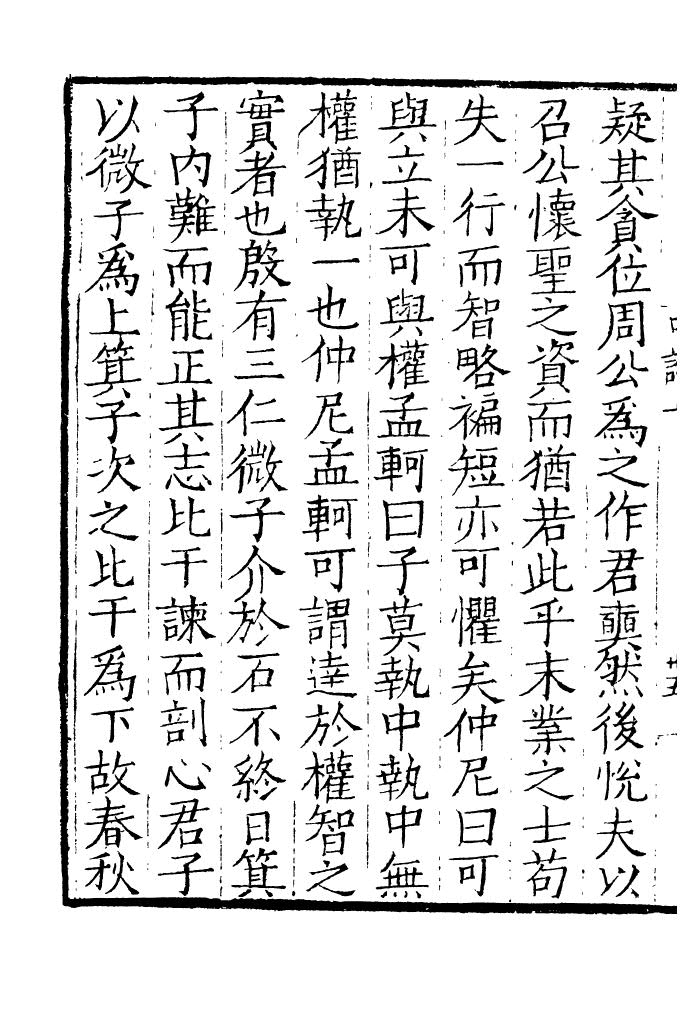 疑其貪位周公爲之作君奭然後悅夫以
召公懷聖之資而猶若此乎末業之士苟
失一行而智略褊短亦可懼矣仲尼曰可
與立未可與權孟軻曰子莫執中執中無
權猶執一也仲尼孟軻可謂達於權智之
實者也殷有三仁微子介於石不終日箕
子內難而能正其志比干諫而剖心君子
以微子爲上箕子次之比干爲下故春秋